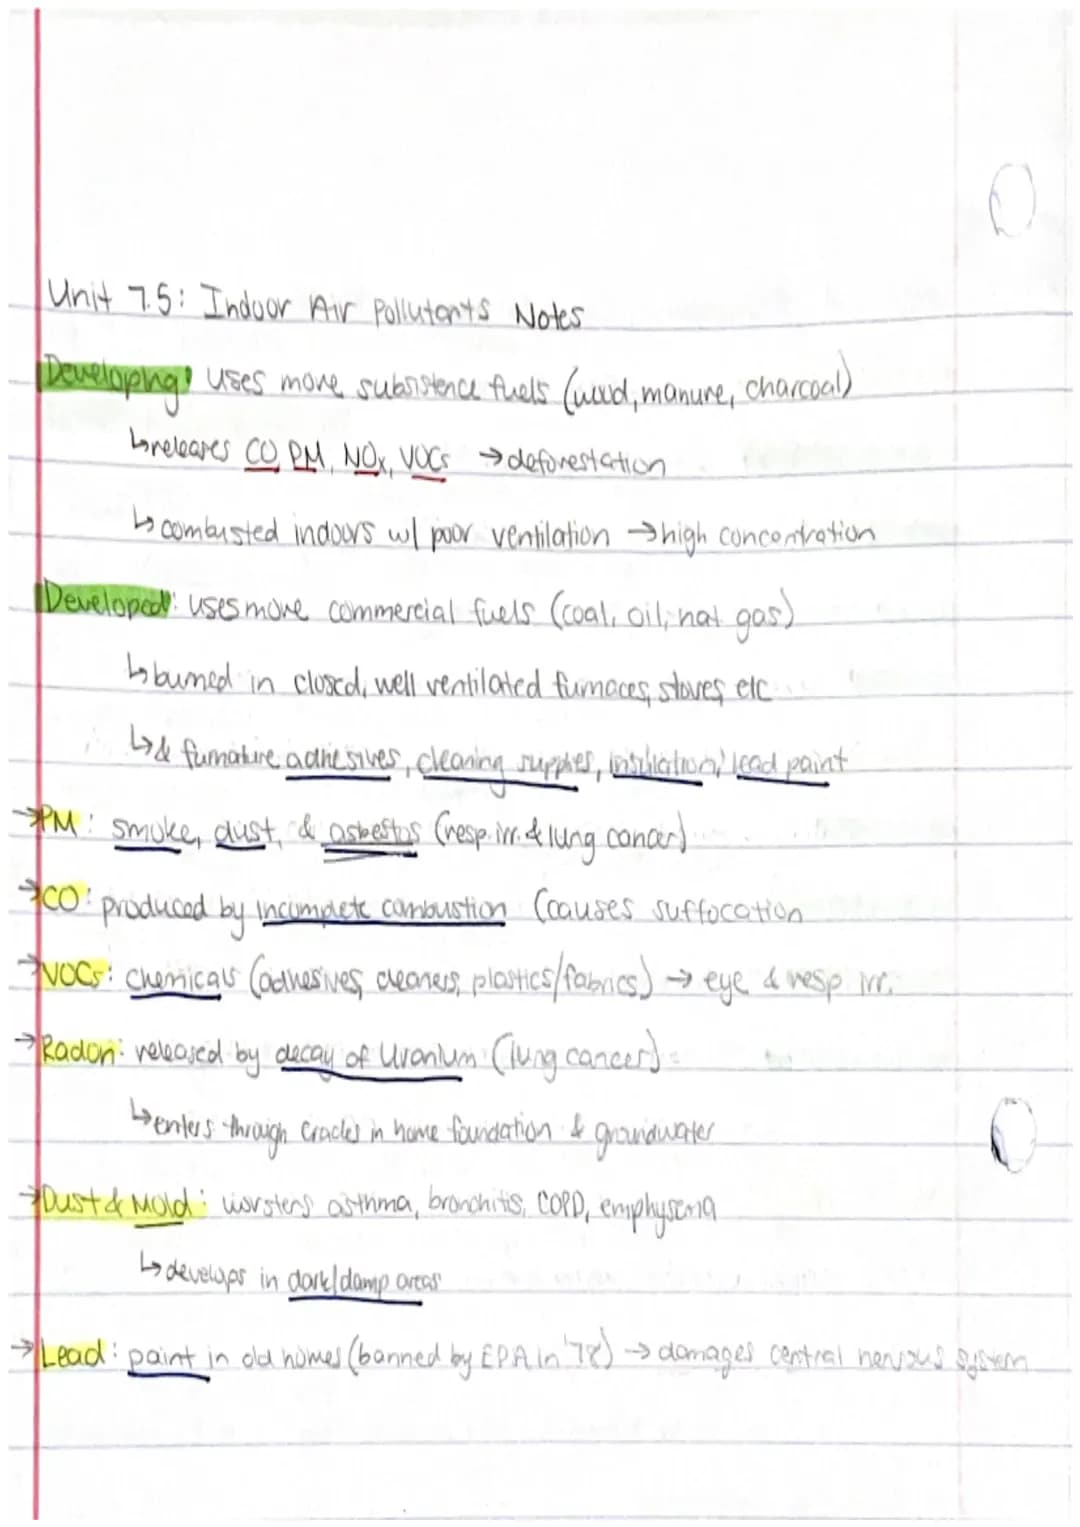 Unit 7.5: Indoor Air Pollutants Notes
Developing: uses more subsistence fuels (wood, manure, charcoal)
↳ releases CO, PM, NOx, VOCs → deforestation
↳ combusted indoors w/ poor ventilation → high concentration
Developed: uses more commercial fuels (coal, oil, nat gas)
↳ burned in closed, well ventilated furnaces, stoves, etc
↳ & furnature adhesives, cleaning supplies, insulation, lead paint
→ PM: smoke, dust, & asbestos (resp. irr. & lung cancer)
→ CO: produced by incomplete combustion (causes suffocation
→ VOCs: chemicals (adhesives, cleaners, plastics/fabrics) → eye & resp irr.
→ Radon: released by decay of Uranium (lung cancer)
↳ enters through cracks in home foundation & groundwater
→ Dust & Mold: worstens asthma, bronchitis, COPD, emphysema
↳ develops in dark/damp areas
→ Lead: paint in old homes (banned by EPA in '78) → damages central nervous system